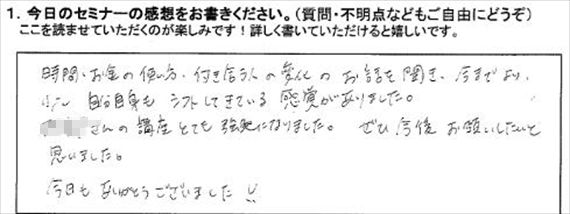 1. 今日のセミナーの感想をお書きください。(質問・不明点などもご自由にどうぞ)
ここを読ませていただくのが楽しみです!詳しく書いていただけると嬉しいです。
時間・お金の使い方、付き合う人の変化のお話を聞き、今までより、
少し自分自身もシフトしてきている感覚がありました。
さんの講座とても強になりました。ぜひ今後お願いしたいと
思いました。
今日もありがとうございました!!